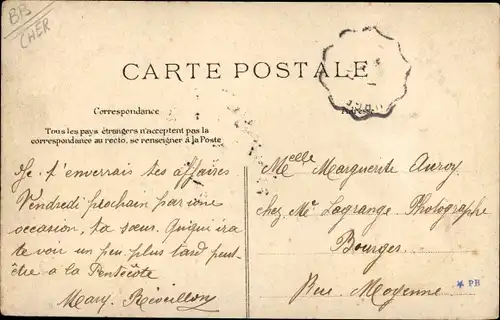 BB
CHER
CARTE POSTALE
Correspondance
Tous les pays étrangers n'acceptent pas la
correspondance au recto, se renseigner à la Poste
Je t'enverrais tes affaires
Vendredi prochain par une
occasion, ta sœur. Quiqui ira
te voir un peu plus tard peut-
être a la Pentecôte
Mary Réveillon
Melle Marguerite Auroy
chez Mr Lagrange Photographe
Bourges
Rue Moyenne
* PB